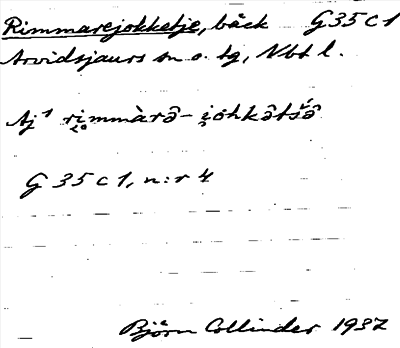 Rimmarejokketje, bäck G35C1
Arvidsjaurs sn o. tg, Nbt l.
Aj¹ ri̭mmàrə̂ - i̭ohkə̂tśə̂
G 35 C 1, n:r 4
Björn Collinder 1937